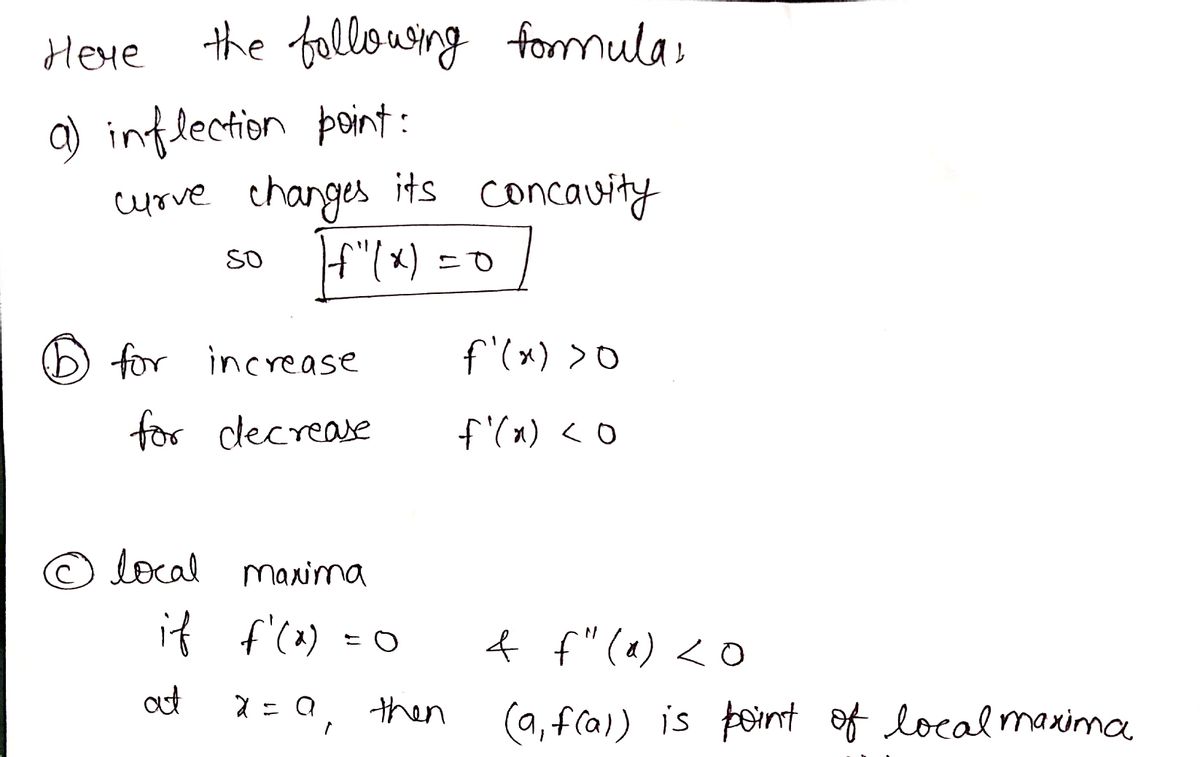 Here the following formula,
a) inflection point:
curve changes its concavity
so f"(x) = 0
(b) for increase f'(x) > 0
for decrease f'(x) < 0
(c) local maxima
if f'(x) = 0 & f"(x) < 0
at x = a, then (a, f(a)) is point of local maxima